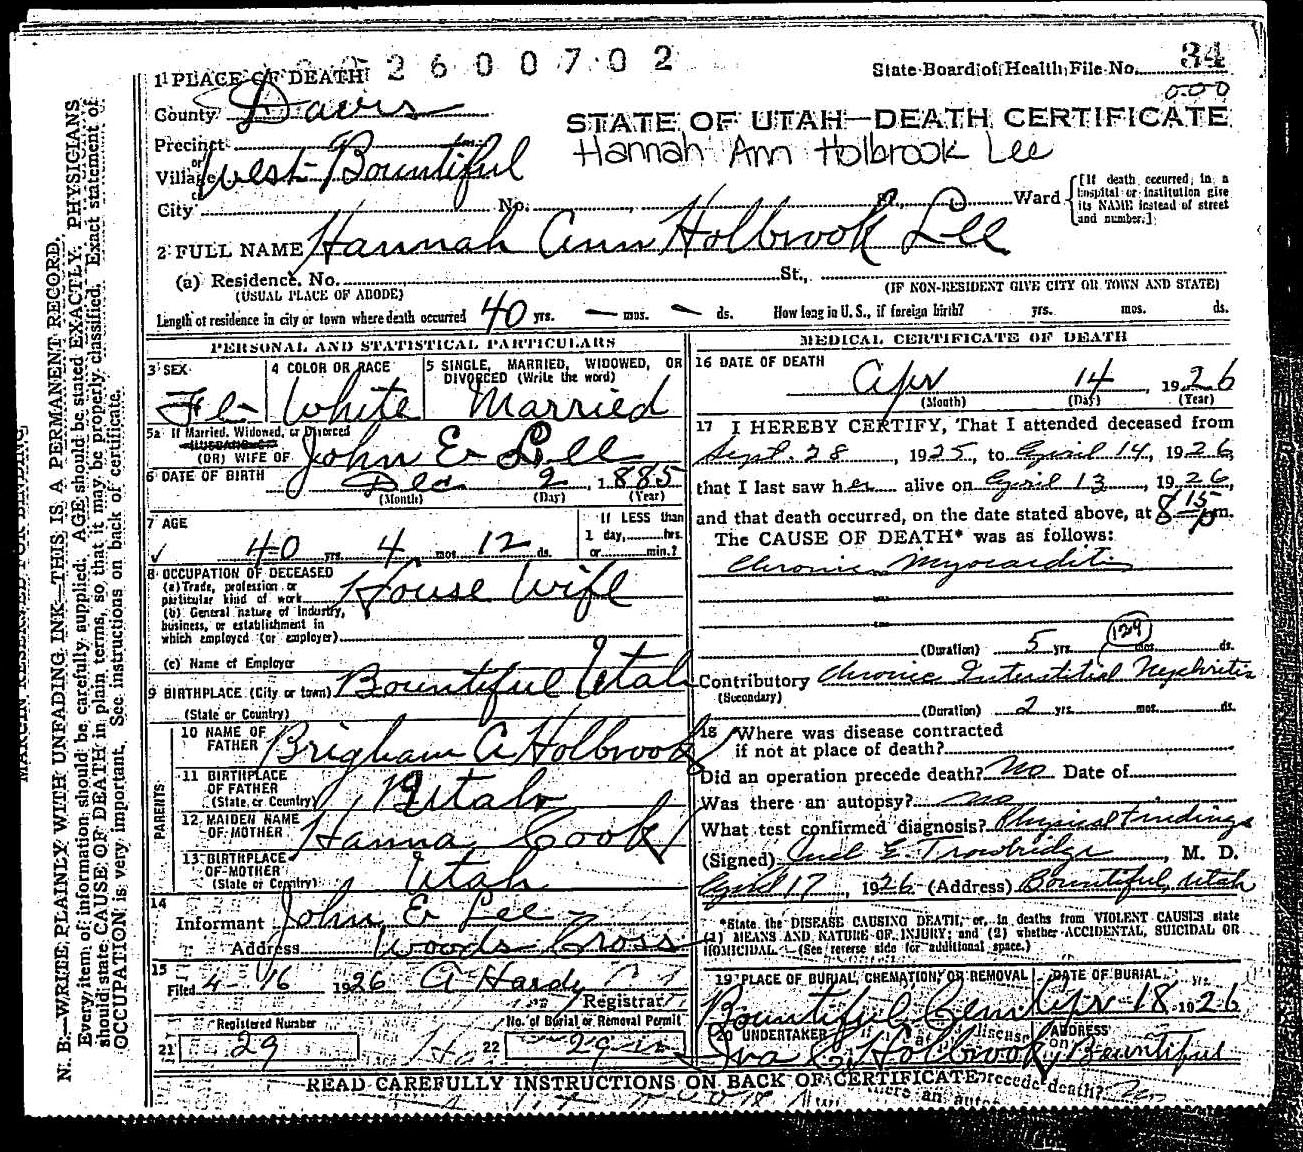 2600702
State Board of Health File No. 34
000
1 PLACE OF DEATH
County Davis
STATE OF UTAH—DEATH CERTIFICATE
Hannah Ann Holbrook Lee
Precinct
or
Village West Bountiful
City No. St., Ward
[If death occurred in a hospital or institution give its NAME instead of street and number.]
2 FULL NAME Hannah Ann Holbrook Lee
(a) Residence. No. St.,
(USUAL PLACE OF ABODE) (IF NON-RESIDENT GIVE CITY OR TOWN AND STATE)
Length of residence in city or town where death occurred 40 yrs. — mos. — ds. How long in U. S., if foreign birth? yrs. mos. ds.
PERSONAL AND STATISTICAL PARTICULARS
3 SEX Fe-
4 COLOR OR RACE White
5 SINGLE, MARRIED, WIDOWED, OR DIVORCED (Write the word) Married
5a If Married, Widowed, or Divorced
HUSBAND OF
(OR) WIFE OF John E Lee
6 DATE OF BIRTH Dec 2, 1885
(Month) (Day) (Year)
7 AGE 40 yrs. 4 mos. 12 ds.
If LESS than 1 day, hrs. or min.?
8 OCCUPATION OF DECEASED
(a) Trade, profession or particular kind of work House Wife
(b) General nature of industry, business, or establishment in which employed (or employer)
(c) Name of Employer
9 BIRTHPLACE (City or town) Bountiful Utah
(State or Country)
PARENTS
10 NAME OF FATHER Brigham A Holbrook
11 BIRTHPLACE OF FATHER (State or Country) Utah
12 MAIDEN NAME OF MOTHER Hanna Cook
13 BIRTHPLACE OF MOTHER (State or Country) Utah
14
Informant John E Lee
Address Woods Cross
15
Filed 4-16 1926 A Hardy
Registrar
Registered Number
21 29
No. of Burial or Removal Permit
22 29
MEDICAL CERTIFICATE OF DEATH
16 DATE OF DEATH
Apr 14, 1926
(Month) (Day) (Year)
17 I HEREBY CERTIFY, That I attended deceased from
Sept. 28, 1925, to April 14, 1926,
that I last saw her alive on April 13, 1926,
and that death occurred, on the date stated above, at 8 15 pm.
The CAUSE OF DEATH* was as follows:
Chronic Myocarditis
129
(Duration) 5 yrs. mos. ds.
Contributory Chronic Interstitial Nephritis
(Secondary)
(Duration) 2 yrs. mos. ds.
18 Where was disease contracted
if not at place of death?
Did an operation precede death? No Date of
Was there an autopsy? no
What test confirmed diagnosis? Physical Findings
(Signed) E. Trowbridge, M. D.
April 17, 1926 (Address) Bountiful, Utah
*State the DISEASE CAUSING DEATH, or, in deaths from VIOLENT CAUSES state
(1) MEANS AND NATURE OF INJURY; and (2) whether ACCIDENTAL, SUICIDAL OR
HOMICIDAL. (See reverse side for additional space.)
19 PLACE OF BURIAL, CREMATION, OR REMOVAL DATE OF BURIAL
Bountiful Cem Apr 18 1926
20 UNDERTAKER ADDRESS
Holbrook Bountiful
READ CAREFULLY INSTRUCTIONS ON BACK OF CERTIFICATE
MARGIN RESERVED FOR BINDING
N. B.—WRITE PLAINLY WITH UNFADING INK—THIS IS A PERMANENT RECORD.
Every item of information should be carefully supplied. AGE should be stated EXACTLY. PHYSICIANS
should state CAUSE OF DEATH in plain terms, so that it may be properly classified. Exact statement of
OCCUPATION is very important. See instructions on back of certificate.